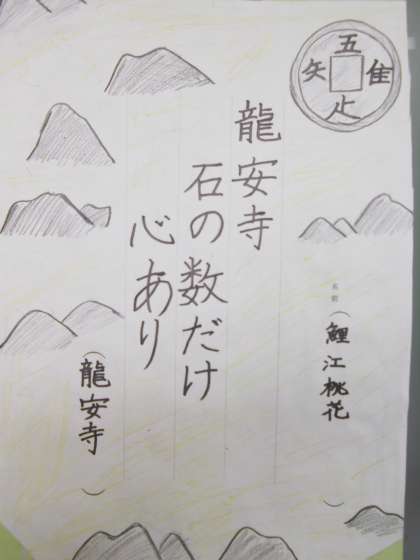 五
矢 隹
止
龍安寺
石の数だけ
心あり
名前（鯉江桃花）
（龍安寺）